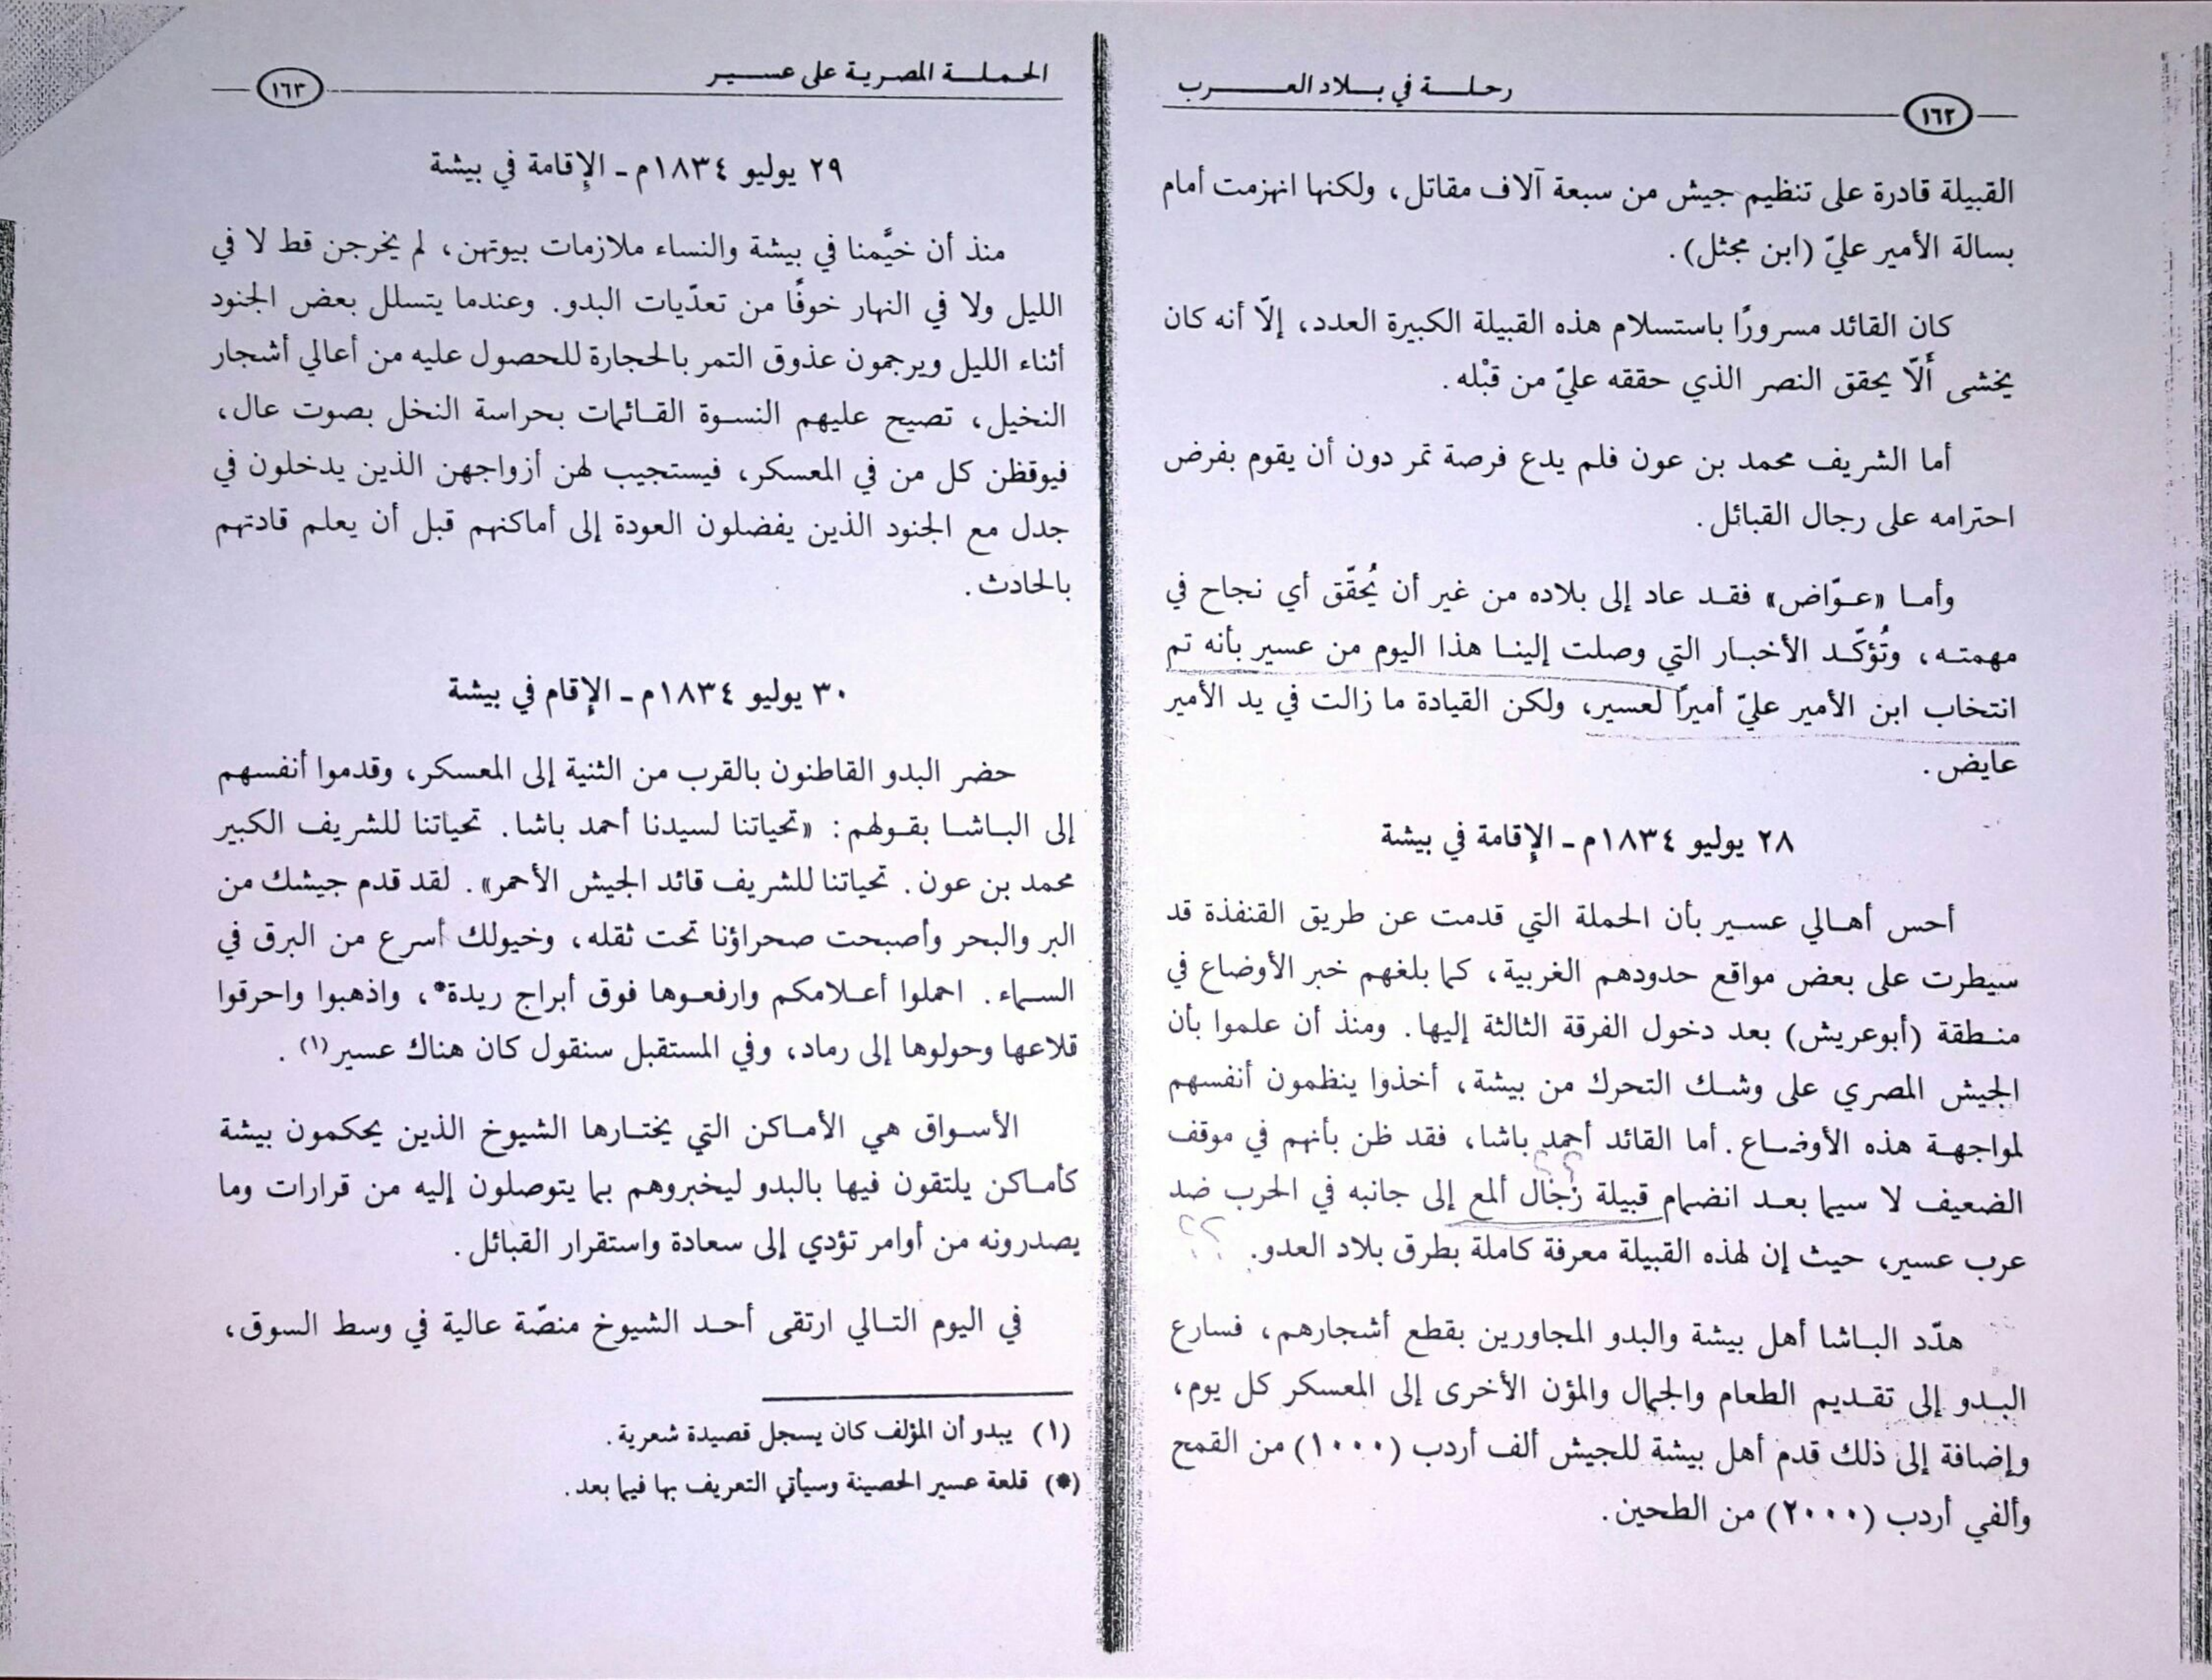 رحلة في بلاد العرب
١٦٢
القبيلة قادرة على تنظيم جيش من سبعة آلاف مقاتل، ولكنها انهزمت أمام
بسالة الأمير عليّ (ابن مجثل).
كان القائد مسرورًا باستسلام هذه القبيلة الكبيرة العدد، إلّا أنه كان
يخشى أَلّا يحقق النصر الذي حققه عليّ من قبْله.
أما الشريف محمد بن عون فلم يدع فرصة تمر دون أن يقوم بفرض
احترامه على رجال القبائل.
وأما «عوّاض» فقد عاد إلى بلاده من غير أن يُحقّق أي نجاح في
مهمته، وتُؤكّد الأخبار التي وصلت إلينا هذا اليوم من عسير بأنه تم
انتخاب ابن الأمير عليّ أميرًا لعسير، ولكن القيادة ما زالت في يد الأمير
عايض.
٢٨ يوليو ١٨٣٤م - الإقامة في بيشة
أحس أهالي عسير بأن الحملة التي قدمت عن طريق القنفذة قد
سيطرت على بعض مواقع حدودهم الغربية، كما بلغهم خبر الأوضاع في
منطقة (أبوعريش) بعد دخول الفرقة الثالثة إليها. ومنذ أن علموا بأن
الجيش المصري على وشك التحرك من بيشة، أخذوا ينظمون أنفسهم
لمواجهة هذه الأوضاع. أما القائد أحمد باشا، فقد ظن بأنهم في موقف
الضعيف لا سيما بعد انضمام قبيلة رُجَال ألمع إلى جانبه في الحرب ضد
عرب عسير، حيث إن لهذه القبيلة معرفة كاملة بطرق بلاد العدو. ؟؟
هدّد الباشا أهل بيشة والبدو المجاورين بقطع أشجارهم، فسارع
البدو إلى تقديم الطعام والجمال والمؤن الأخرى إلى المعسكر كل يوم،
وإضافة إلى ذلك قدم أهل بيشة للجيش ألف أردب (١٠٠٠) من القمح
وألفي أردب (٢٠٠٠) من الطحين.
الحملة المصرية على عسير
١٦٣
٢٩ يوليو ١٨٣٤م - الإقامة في بيشة
منذ أن خيَّمنا في بيشة والنساء ملازمات بيوتهن، لم يخرجن قط لا في
الليل ولا في النهار خوفًا من تعدّيات البدو. وعندما يتسلل بعض الجنود
أثناء الليل ويرجمون عذوق التمر بالحجارة للحصول عليه من أعالي أشجار
النخيل، تصيح عليهم النسوة القائمات بحراسة النخل بصوت عال،
فيوقظن كل من في المعسكر، فيستجيب لهن أزواجهن الذين يدخلون في
جدل مع الجنود الذين يفضلون العودة إلى أماكنهم قبل أن يعلم قادتهم
بالحادث.
٣٠ يوليو ١٨٣٤م - الإقام في بيشة
حضر البدو القاطنون بالقرب من الثنية إلى المعسكر، وقدموا أنفسهم
إلى الباشا بقولهم: «تحياتنا لسيدنا أحمد باشا. تحياتنا للشريف الكبير
محمد بن عون. تحياتنا للشريف قائد الجيش الأحمر». لقد قدم جيشك من
البر والبحر وأصبحت صحراؤنا تحت ثقله، وخيولك أسرع من البرق في
السماء. احملوا أعلامكم وارفعوها فوق أبراج ريدة*، واذهبوا واحرقوا
قلاعها وحولوها إلى رماد، وفي المستقبل سنقول كان هناك عسير(١).
الأسواق هي الأماكن التي يختارها الشيوخ الذين يحكمون بيشة
كأماكن يلتقون فيها بالبدو ليخبروهم بما يتوصلون إليه من قرارات وما
يصدرونه من أوامر تؤدي إلى سعادة واستقرار القبائل.
في اليوم التالي ارتقى أحد الشيوخ منصّة عالية في وسط السوق،
(١) يبدو أن المؤلف كان يسجل قصيدة شعرية.
(*) قلعة عسير الحصينة وسيأتي التعريف بها فيما بعد.